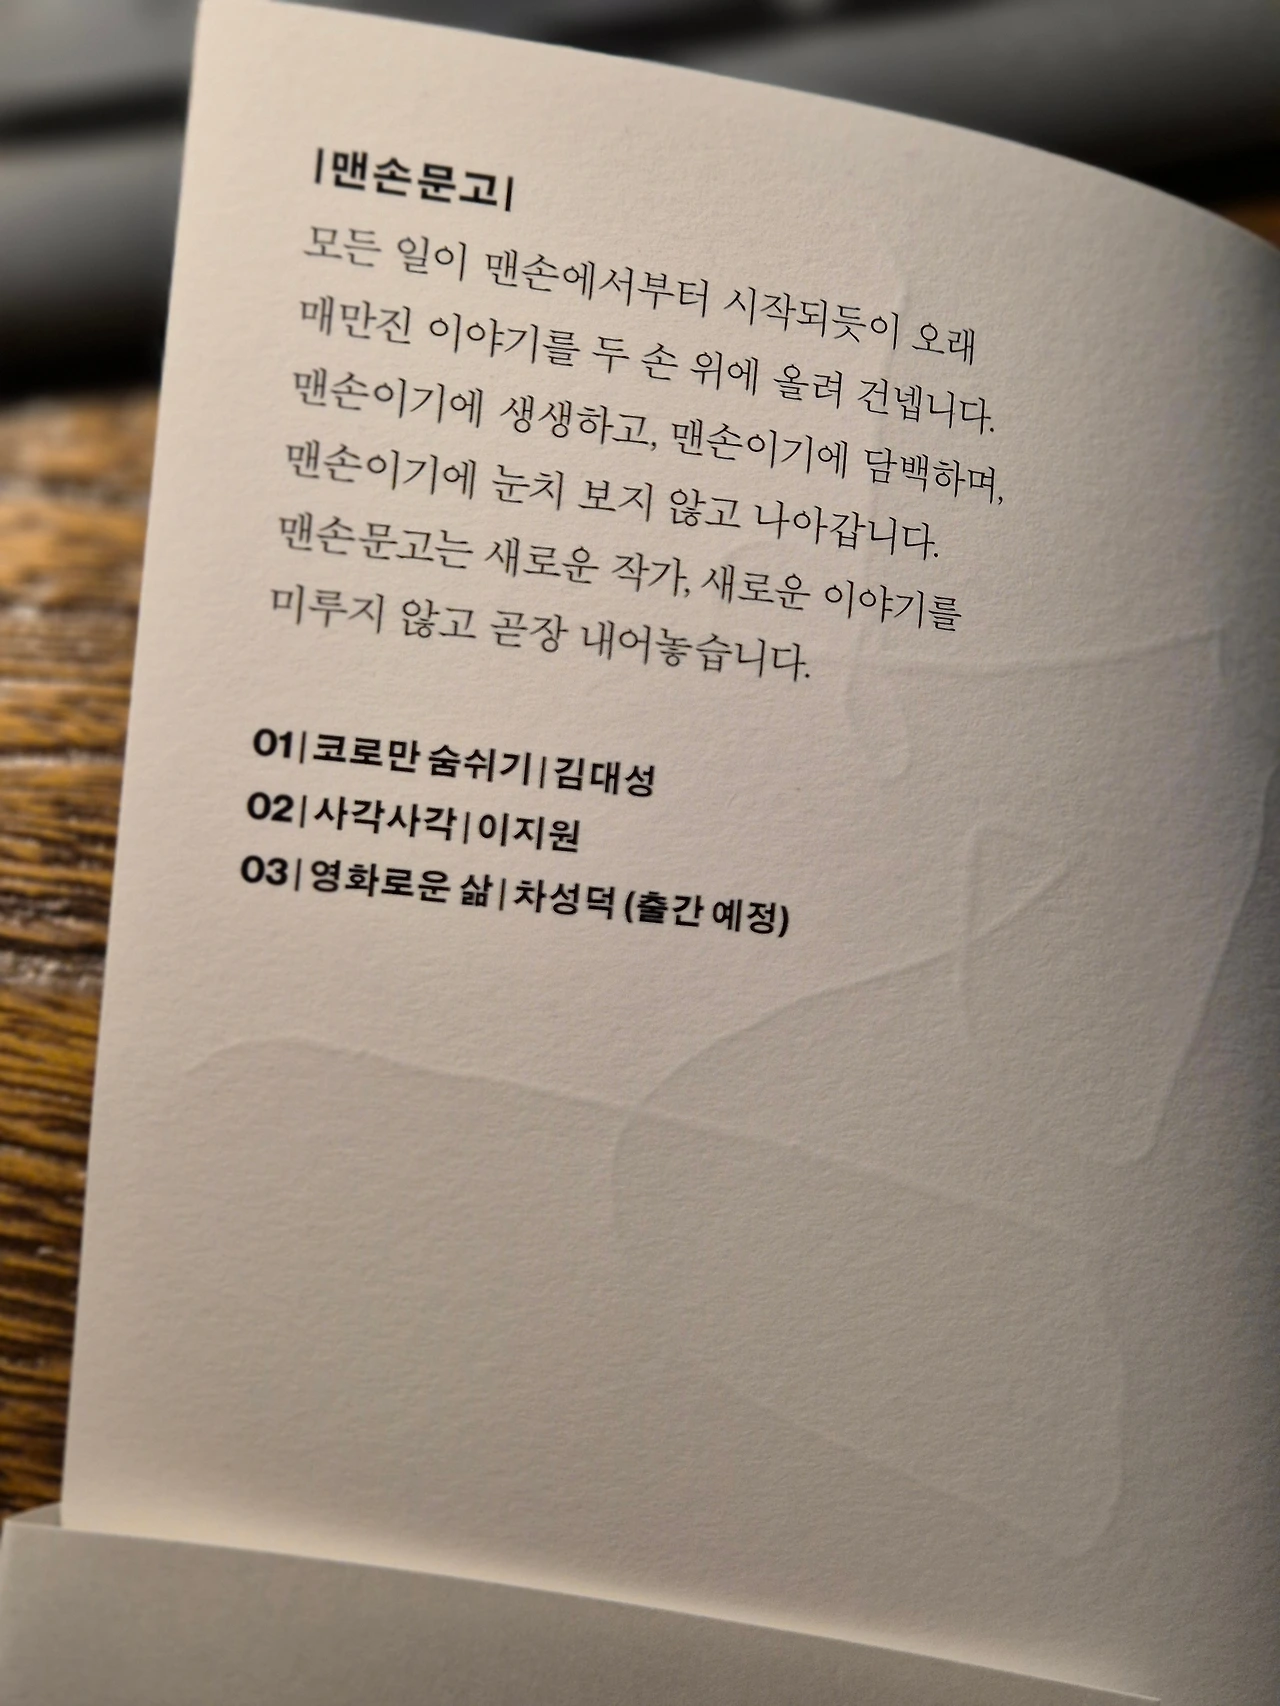 |맨손문고|
모든 일이 맨손에서부터 시작되듯이 오래
매만진 이야기를 두 손 위에 올려 건넵니다.
맨손이기에 생생하고, 맨손이기에 담백하며,
맨손이기에 눈치 보지 않고 나아갑니다.
맨손문고는 새로운 작가, 새로운 이야기를
미루지 않고 곧장 내어놓습니다.
01|코로만 숨쉬기|김대성
02|사각사각|이지원
03|영화로운 삶|차성덕 (출간 예정)